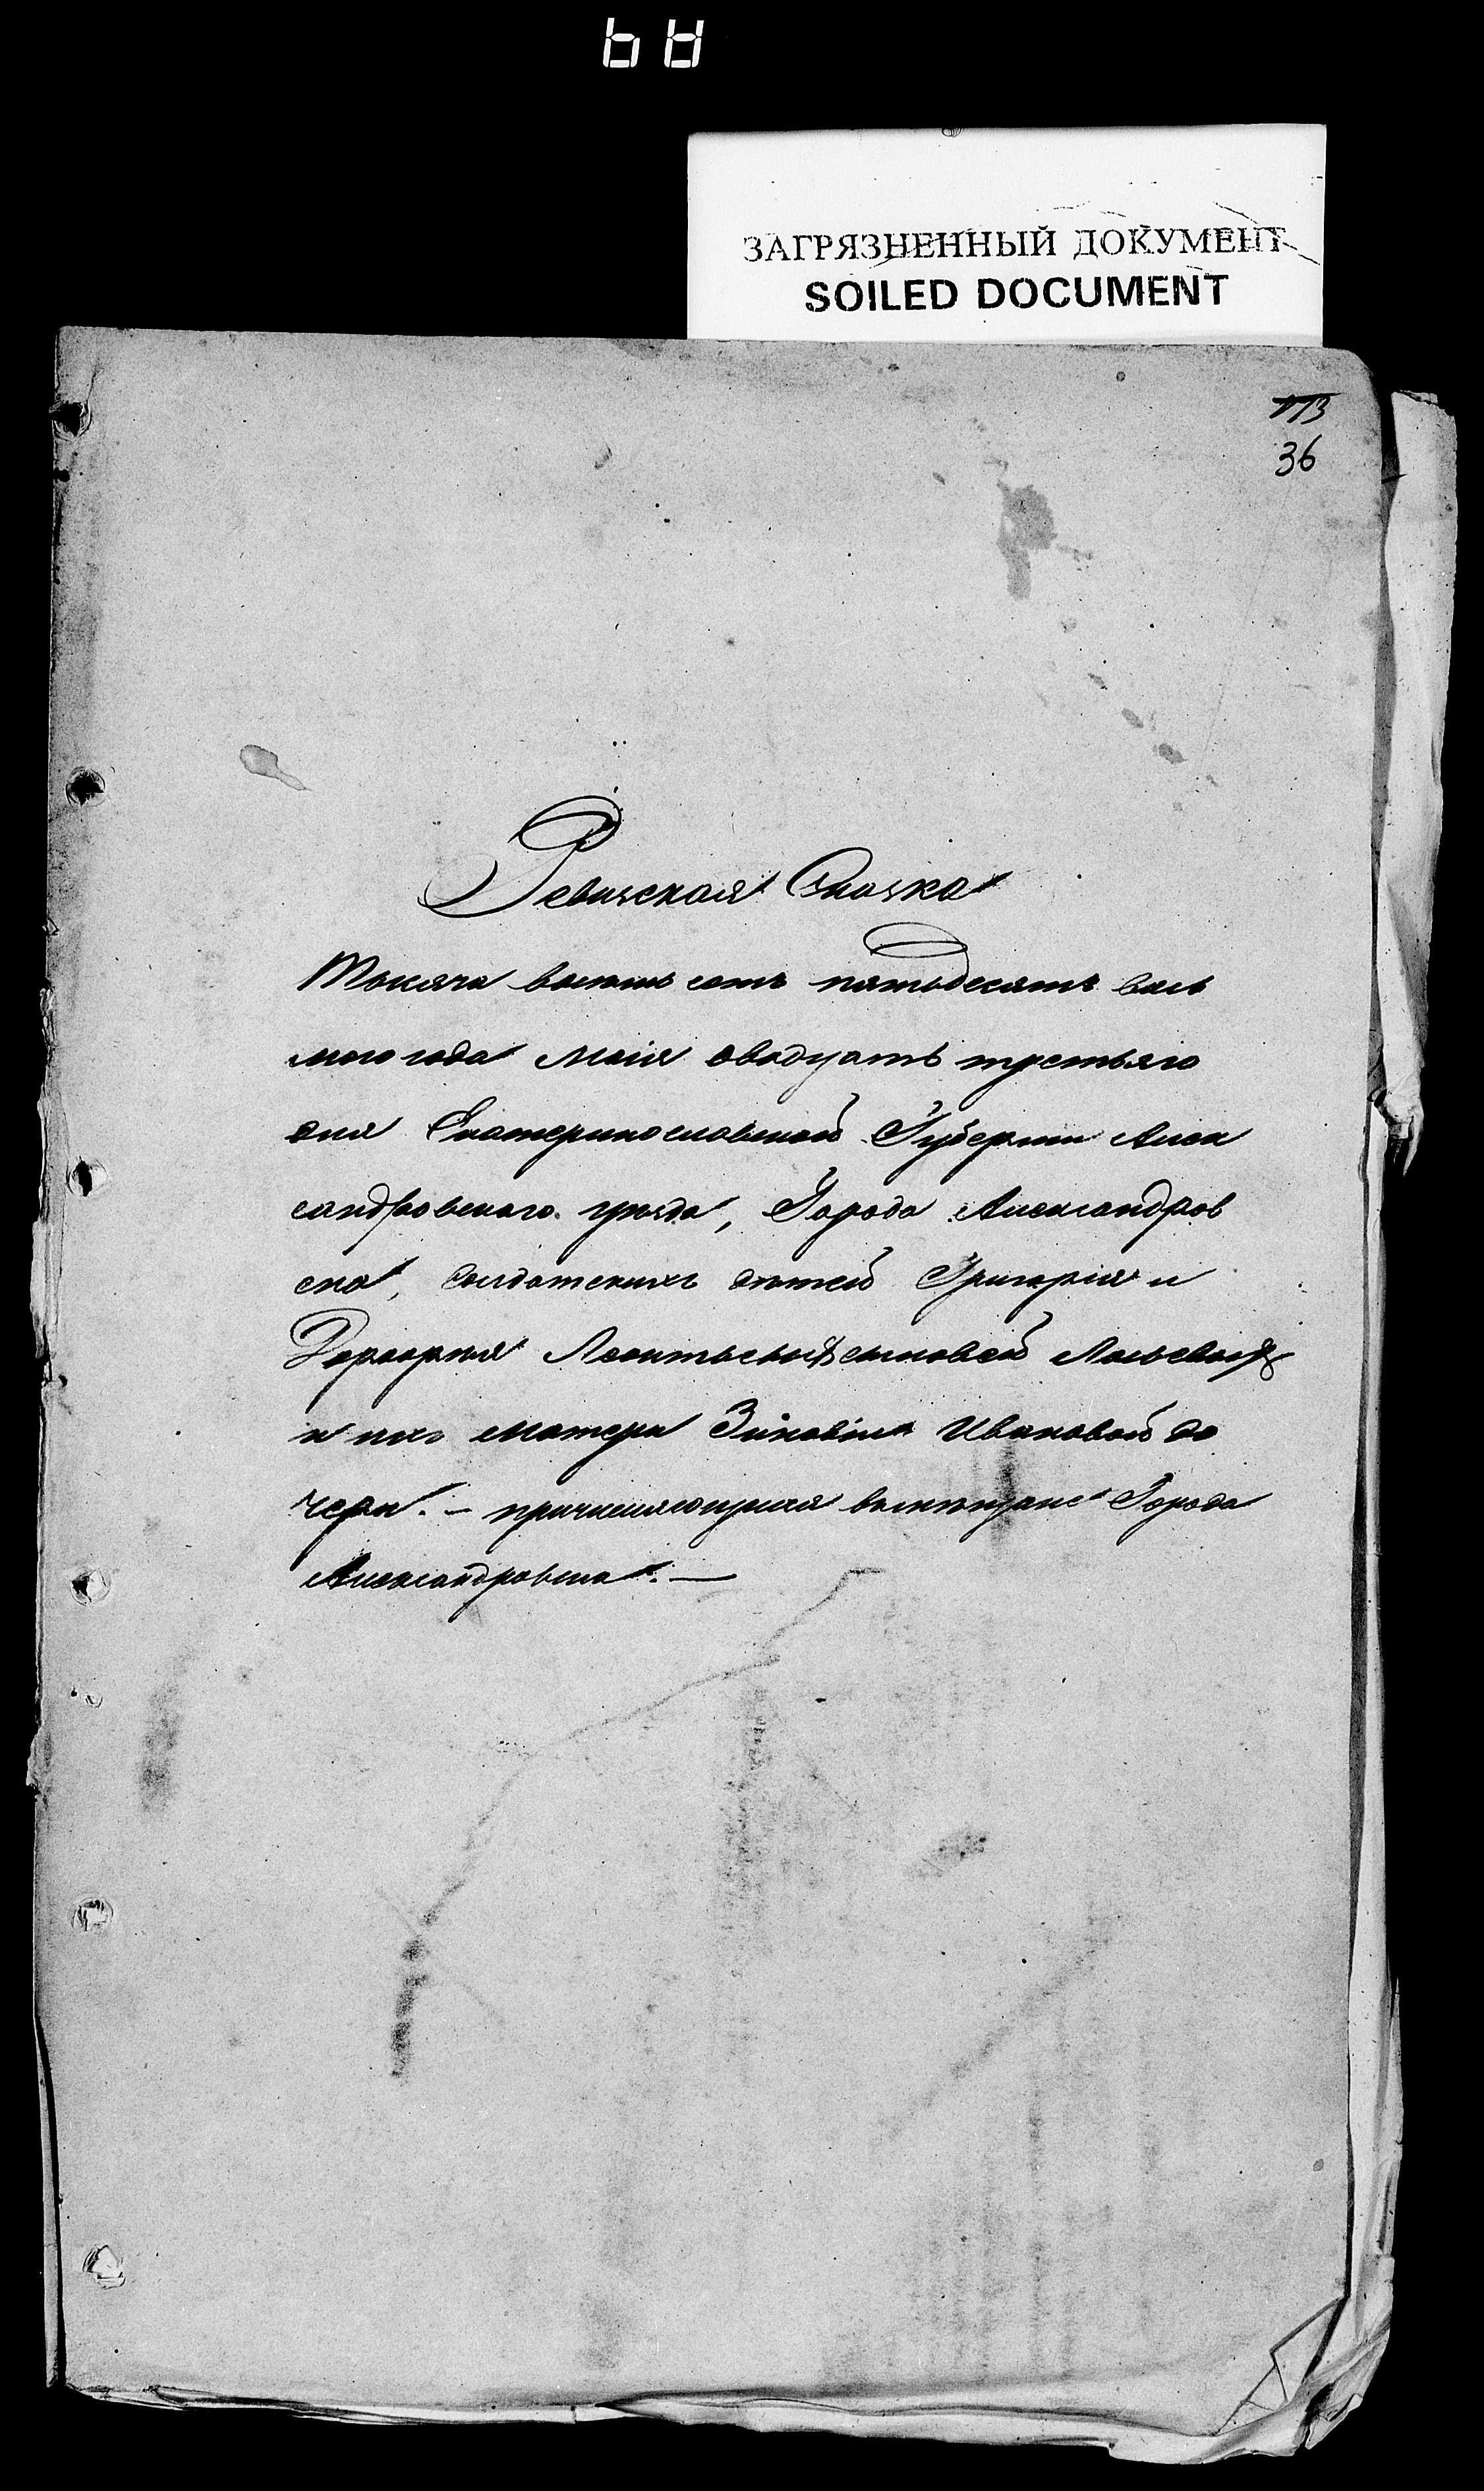 ЗАГРЯЗНЕННЫЙ ДОКУМЕНТ
SOILED DOCUMENT
113
36
Ревизская Сказка
Тысяча восемь сотъ пятьдесятъ вось
мого года маія двадцать третьяго
дня Екатеринославской Губерніи Алек
сандровского уѣзда, Города Александров
ска, солдатскихъ дѣтей Григорія и
сыновей
и ихъ матери Зиновіи Ивановой до
чери. — причисляющихся въ мѣщане Города
Александровска. —